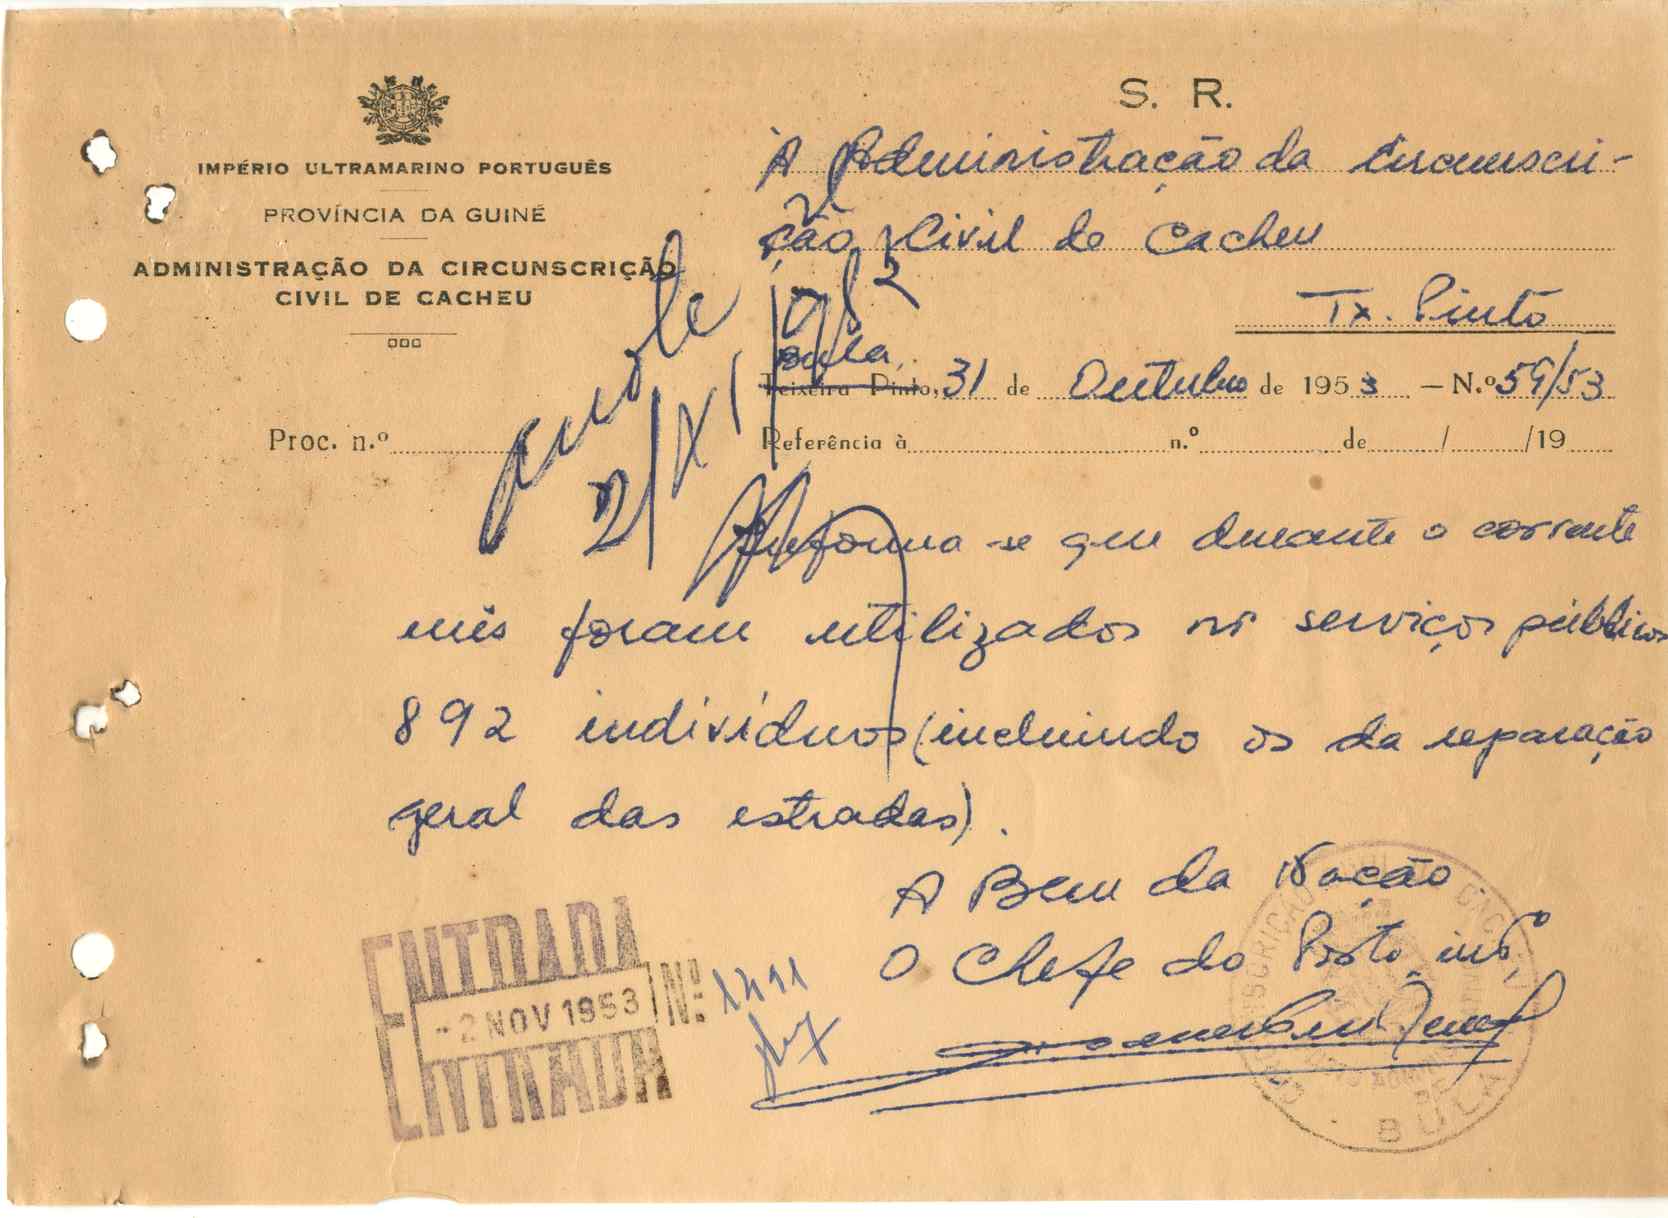 S. R.
IMPÉRIO ULTRAMARINO PORTUGUÊS
PROVÍNCIA DA GUINÉ
ADMINISTRAÇÃO DA CIRCUNSCRIÇÃO
CIVIL DE CACHEU
À Administração da Circunscri-
ção Civil de Cacheu
Tx. Pinto
Bula,
Teixeira Pinto, 31 de Outubro de 1953 — N.º 59/53
Proc. n.º
Referência à n.º de / /19
2/XI/952
Informa-se que durante o corrente
mês foram utilizados nos serviços públicos
892 indivíduos (incluindo os da reparação
geral das estradas).
A Bem da Nação
O Chefe do Posto, intº,
ENTRADA
-2 NOV 1953 Nº
ENTRADA
BULA